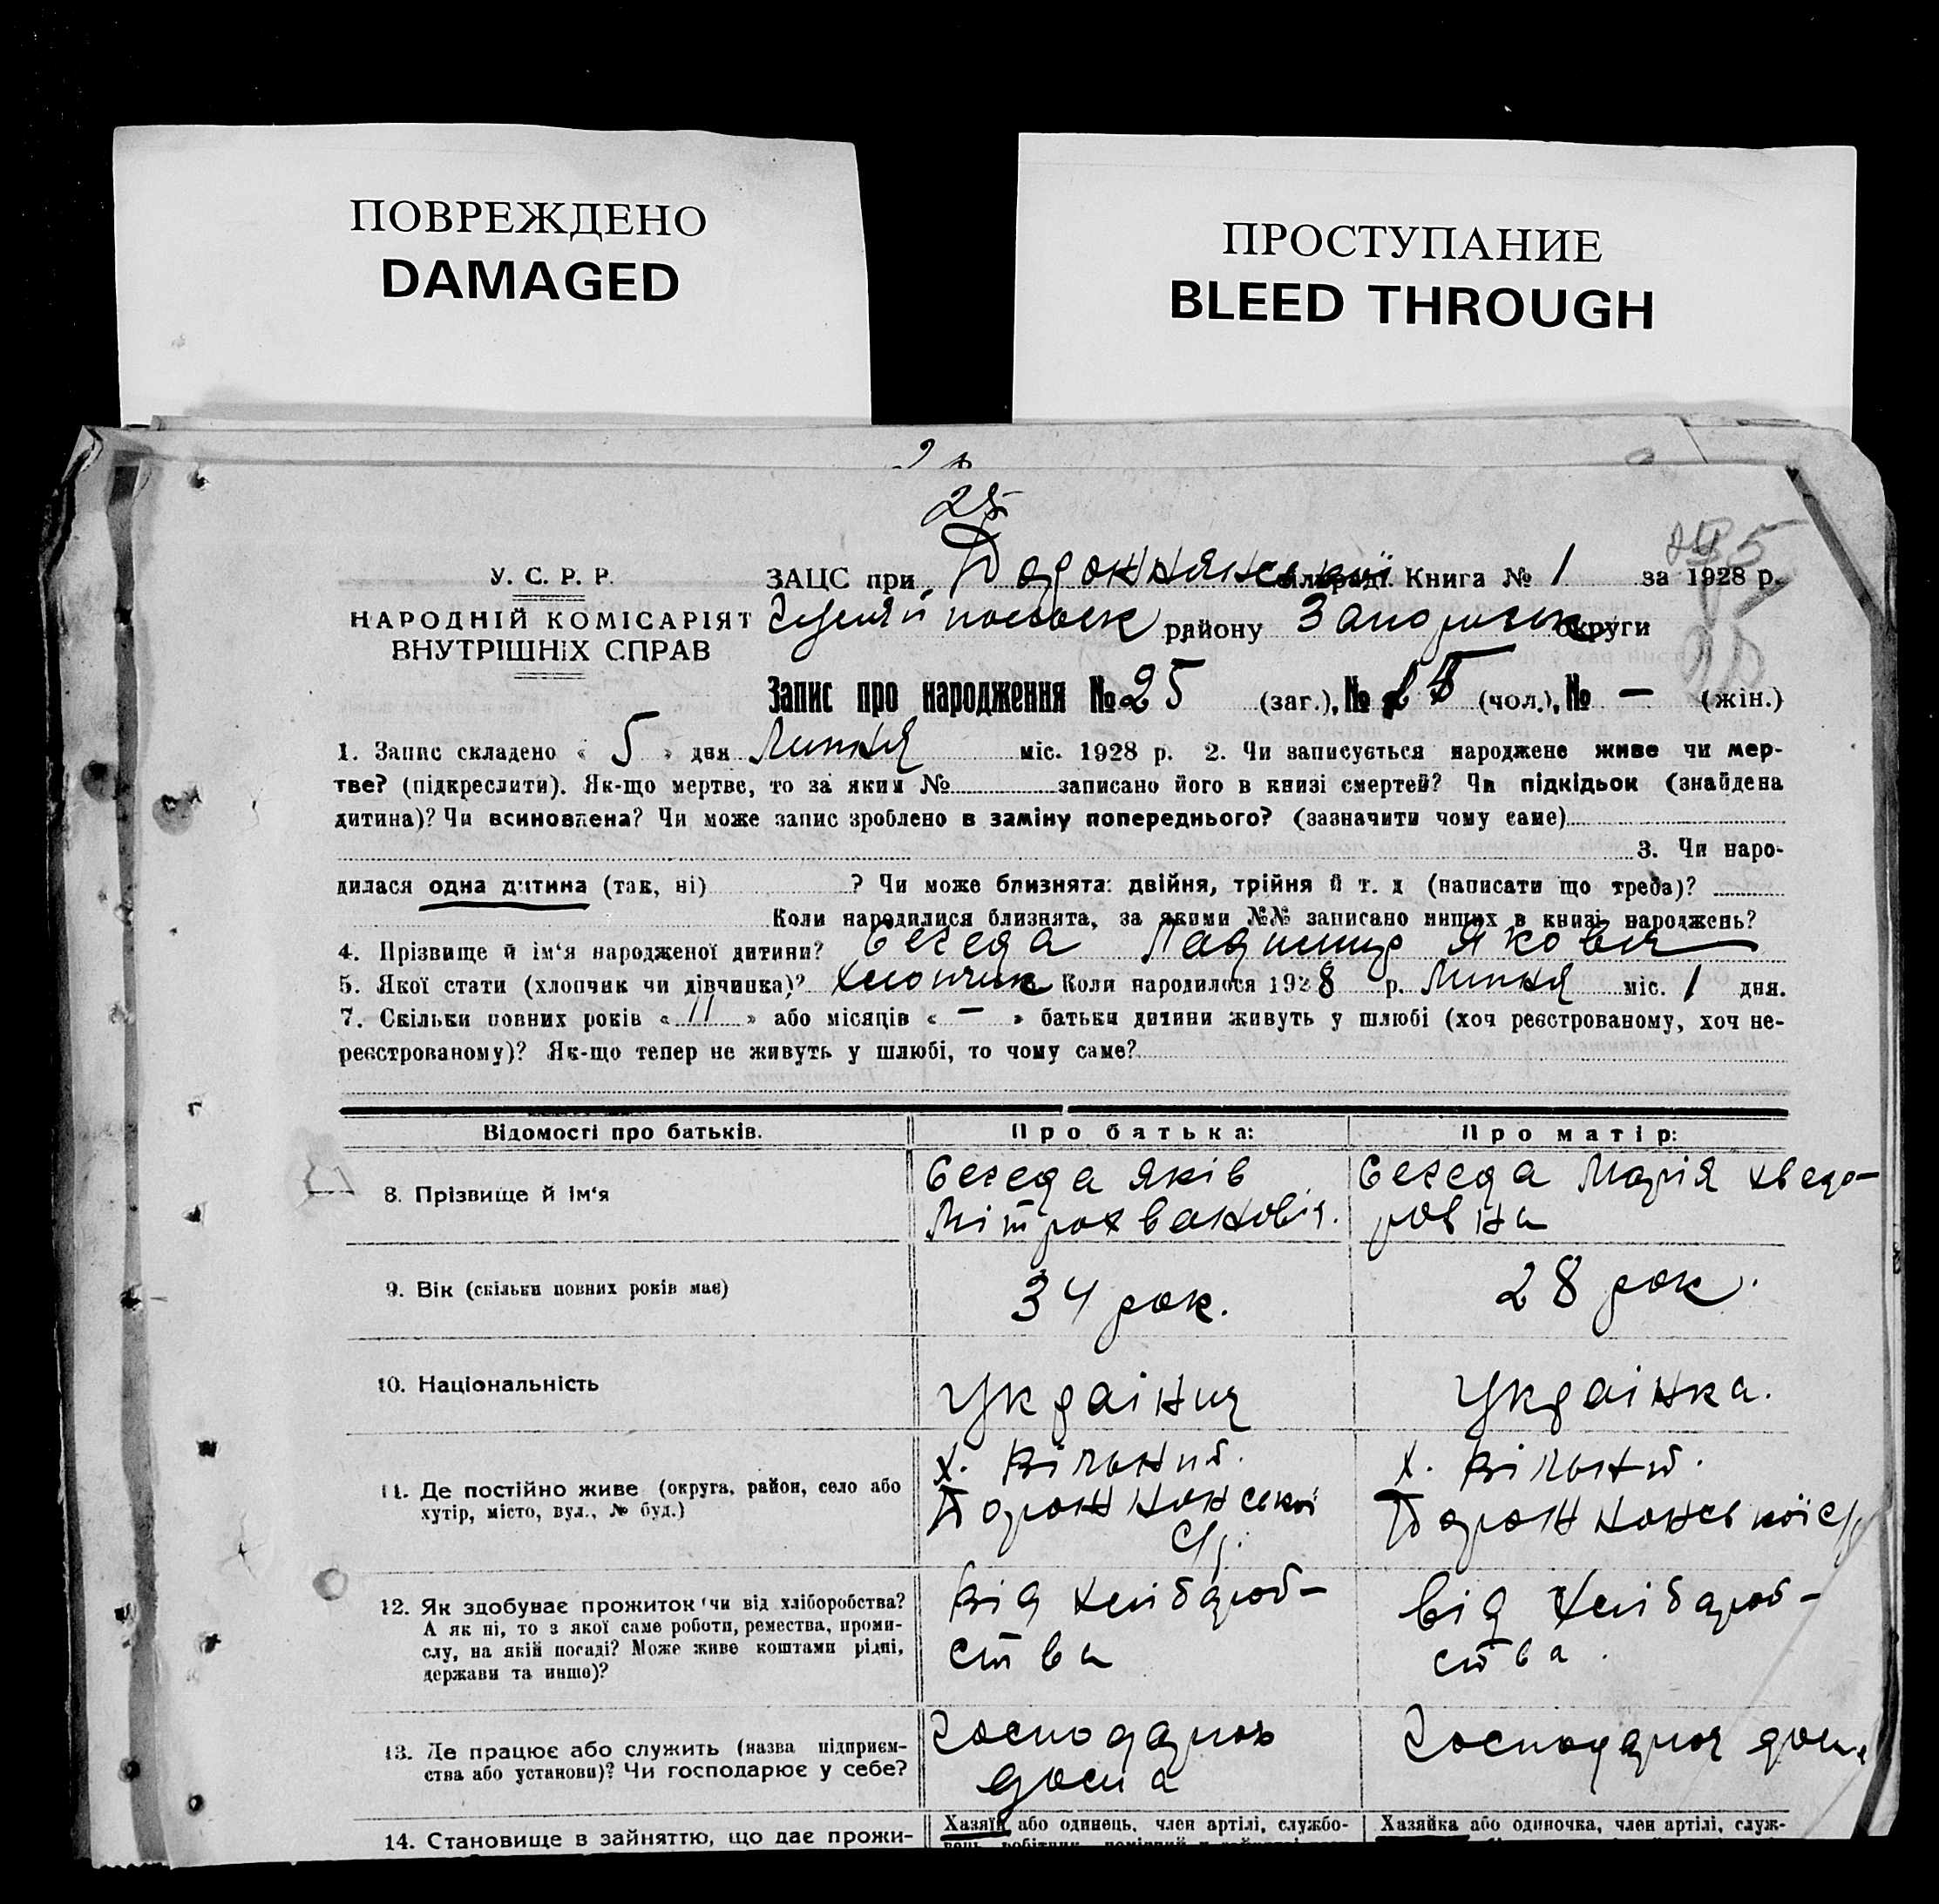 ПОВРЕЖДЕНО
DAMAGED
ПРОСТУПАНИЕ
BLEED THROUGH
25
У. С. Р. Р.
НАРОДНІЙ КОМІСАРІЯТ
ВНУТРІШНІХ СПРАВ
ЗАЦС при сільраді. Книга № 1 за 1928 р.
району Запорізьк округи
Запис про народження № 25 (заг.), № (чол.), № — (жін.)
1. Запис складено « 5 » дня Липня міс. 1928 р. 2. Чи записується народжене живе чи мер-
тве? (підкреслити). Як-що мертве, то за яким № записано його в книзі смертей? Чи підкідьок (знайдена
дитина)? Чи всиновлена? Чи може запис зроблено в заміну попереднього? (зазначити чому саме)
3. Чи наро-
дилася одна дитина (так, ні) ? Чи може близнята: двійня, трійня й т. д (написати що треба)?
Коли народилися близнята, за якими №№ записано инших в книзі народжень?
4. Прізвище й ім‘я народженої дитини? Беседа Яковл
5. Якої стати (хлопчик чи дівчинка)? Хлопчик Коли народилося 1928 р. Липня міс. 1 дня.
7. Скільки повних років « 11 » або місяців « — » батьки дитини живуть у шлюбі (хоч реєстрованому, хоч не-
реєстрованому)? Як-що тепер не живуть у шлюбі, то чому саме?
Відомості про батьків.
Про батька:
Про матір:
8. Прізвище й ім‘я
Беседа Яків
Мітрохванович.
Беседа Марія Хведо-
ровна
9. Вік (скільки повних років має)
34 рок.
28 рок.
10. Національність
Українец
Українка.
11. Де постійно живе (округа, район, село або
хутір, місто, вул., № буд.)
х. Вільний.
с/р.
х. Вільний.
с/р
12. Як здобуває прожиток (чи від хліборобства?
А як ні, то з якої саме роботи, ремества, проми-
слу, на якій посаді? Може живе коштами рідні,
держави та инше)?
Від хліборob-
ства
Від хлібороб-
ства.
13. Де працює або служить (назва підприєм-
ства або установи)? Чи господарює у себе?
Господарює
дома
Господарює дома
14. Становище в зайняттю, що дає прожи-
Хазяїн або одинець, член артілі, службо-
Хазяйка або одиночка, член артілі, служ-